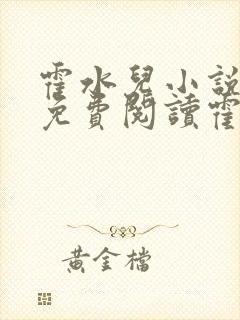 霍水兒小說
免費閱讀霍
黃金檔